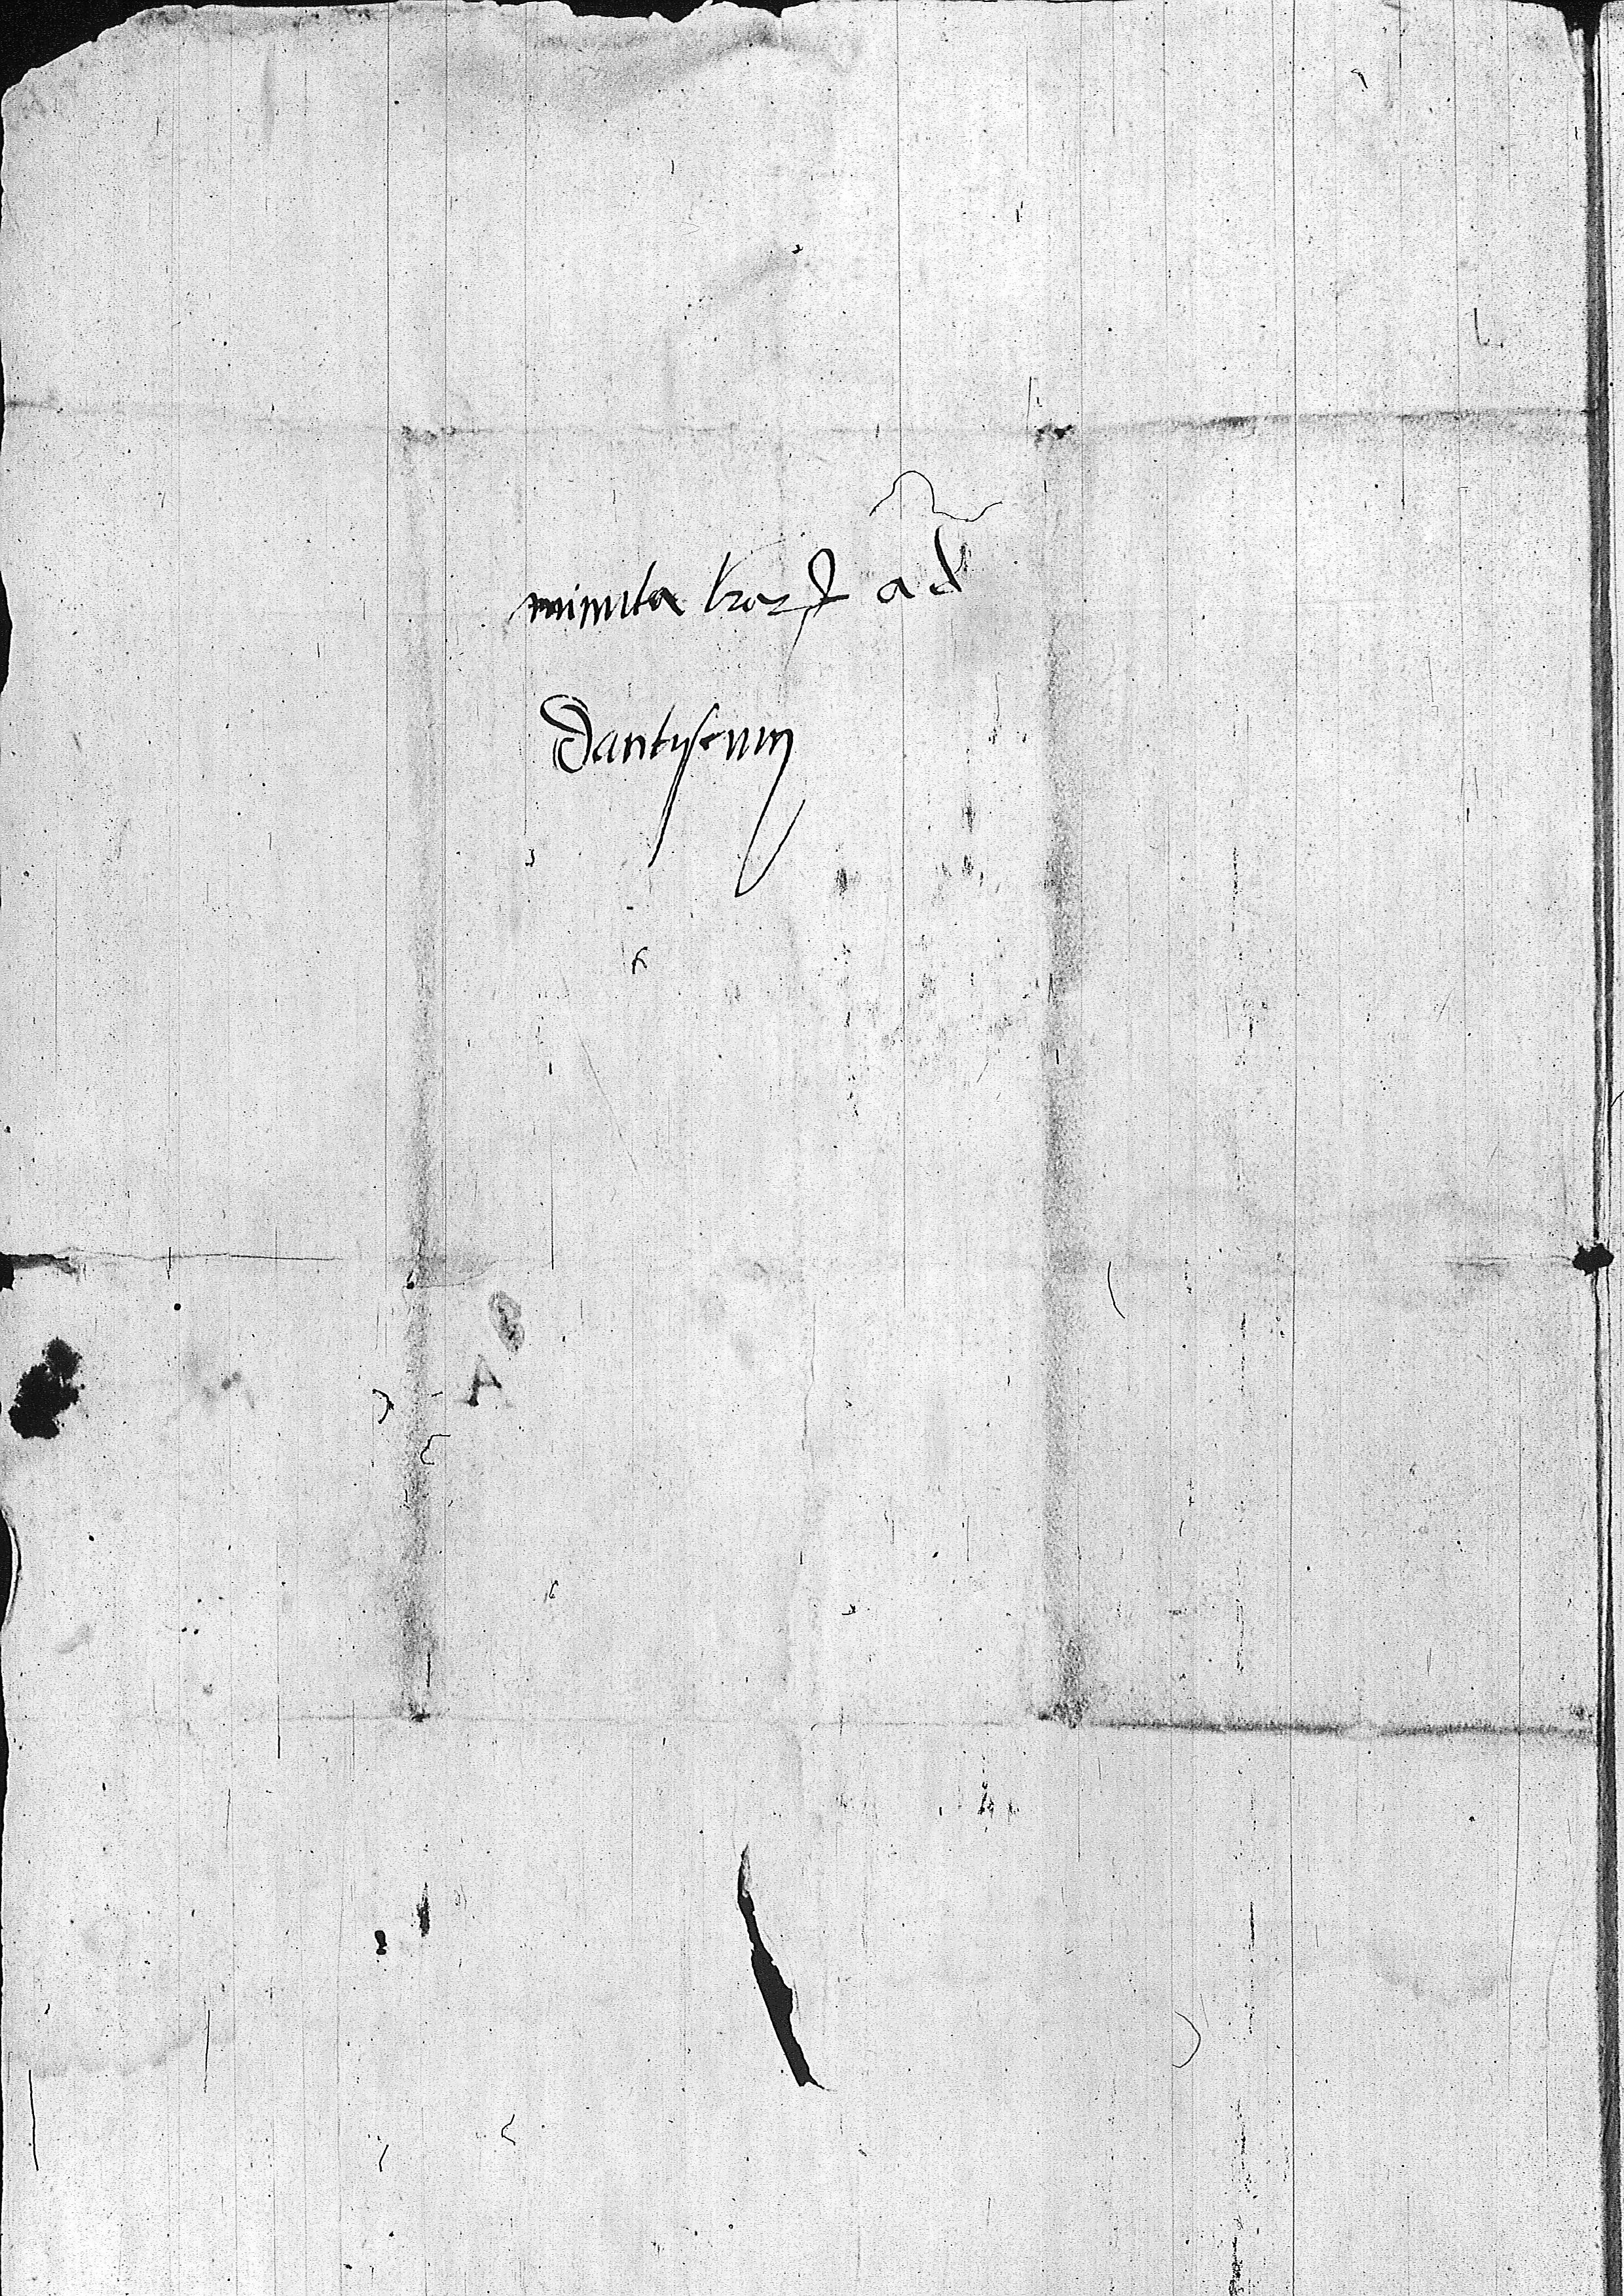 minuta lrarꝝ ad
Dantyscum